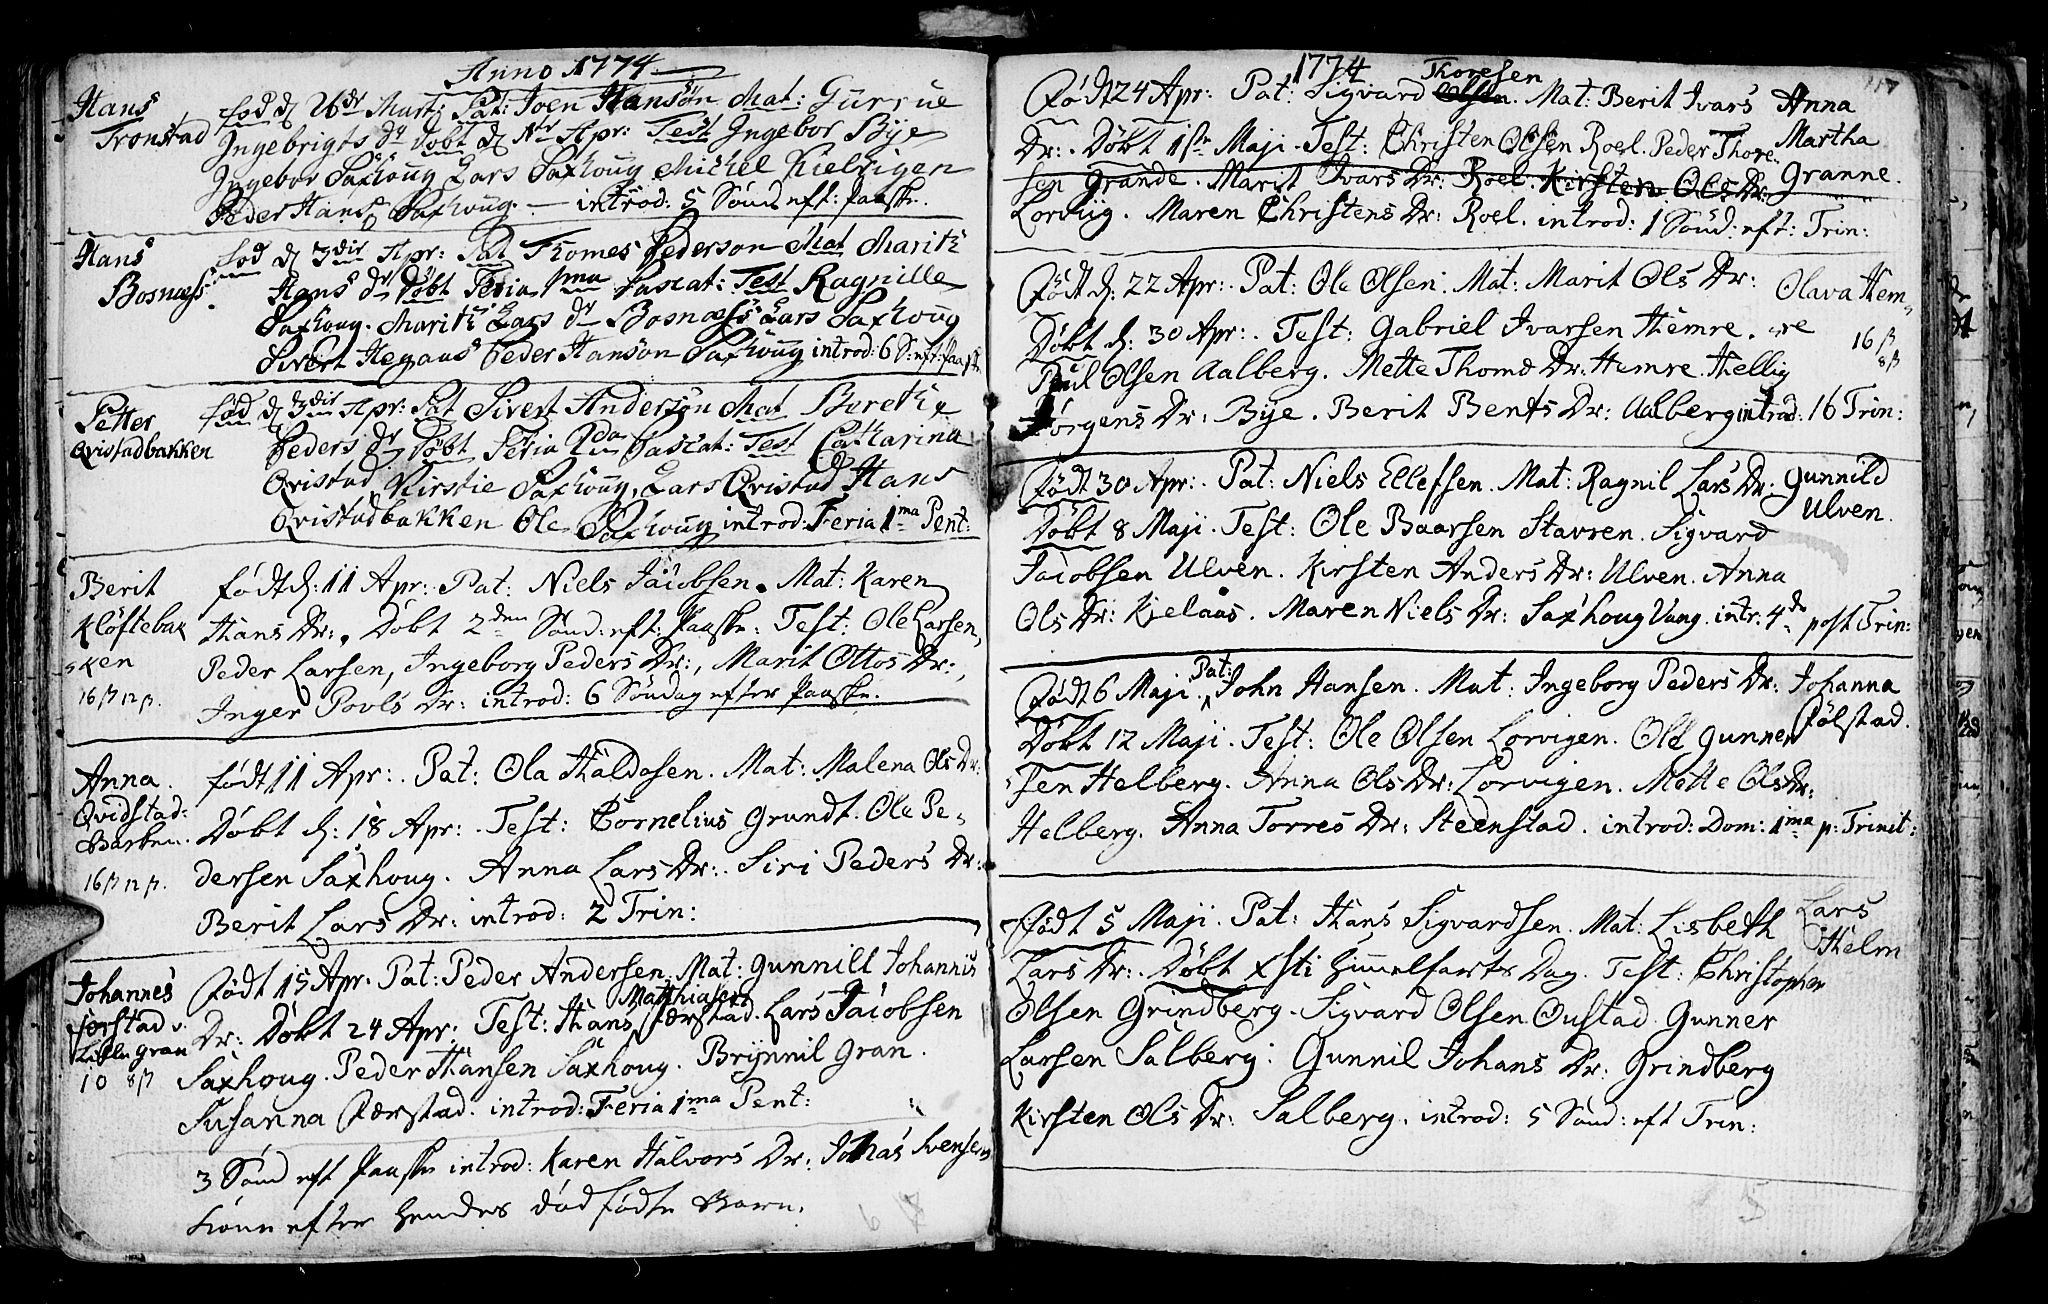 Anno 1774
Hans
Tronstad
fød d 26de Mart: Pat: Joen Hansøn Mat: Gurrue
Ingebrigts dr døbt d Apr: Test Ingebor Bÿe
Ingebor Saxhoug Lars Saxhoug Michel
Peder Hans Saxhoug. — introd: 5 Sønd eft: Paaske.
Hans
Bosnæss
fød d 3die Apr: Pat Thomes Pederson Mat Marith
Hans dr døbt Feria 1ma Pascat: Test Ragnille
Saxhoug. Marith Lars dr Bosnæss Lars Saxhoug
Sivert Peder Hanson Saxhoug introd: 6 S: eft: Paaske
Petter
Qvistadbakken
fød d 3die Apr: Pat Sivert Anderson Mat Berethe
Peders dr døbt Feria 2da Pascat: Test Catharina
Qvistad Kirstie Saxhoug, Lars Qvistad Hans
Qvistadbakken Ole Saxhoug introd: Feria 1ma Pent:
Berit
Kløftebak
ken
16 β 12 β.
født d: 11 Apr: Pat: Niels Jacobsen. Mat: Karen
Hans Dr:. Døbt 2den Sønd: eft: Paaske: Test: Ole Larsen,
Peder Larsen, Ingeborg Peders Dr:, Marit Ottos Dr:,
Inger Povls Dr: introd: 6 Søndag efter Paaske.
Anna.
Qvidstad:
Bakken.
16 β 12 β.
født 11 Apr:. Pat: Ola Haldosen. Mat: Malena Ols Dr:
Døbt d: 18 Apr:. Test: Cornelius Grundt. Ole Pe-
dersen Saxhoug. Anna Lars Dr:. Siri Peders Dr:
Berit Lars Dr: introd: 2 Trin:
Johannes
Færstad v.
Lille gran
10 8 β
Født 15 Apr. Pat: Peder Andersen. Mat: Gunnill Johannis
Dr: Døbt 24 Apr: Test: Hans Matthiasen Færstad. Lars Jacobsen
Saxhoug. Peder Hansen Saxhoug. Brÿnnil Gran.
Susanna Færstad. introd: Feria 1ma Pent:
3 Sønd eft Paaske introd: Karen Halvors Dr: Jonas Svensens
Kone efter hendes dødfødte Barn.
6
1774
117
Født 24 Apr: Pat: Sigvard Thoresen. Mat: Berit Ivars
Anna
Martha
Granne.
Dr:. Døbt 1ste Maji. Test: Christen Olsen Roel. Peder Thore-
sen Grande. Marit Ivars Dr: Roel. Kirsten Ols Dr:
Lorviig. Maren Christens Dr: Roel. introd: 1 Sønd: eft: Trin:
Født d: 22 Apr:. Pat: Ole Olsen. Mat: Marit Ols Dr:
Olava Hem-
re
16 β
8 β
Døbt d: 30 Apr:. Test: Gabriel Ivarsen Hemre.
Paul Olsen Aalberg. Mette Thomæ Dr: Hemre. Hellig
Jørgens Dr: Bÿe. Berit Bents Dr: Aalberg introd: 16 Trin:
Født 30 Apr:. Pat: Niels Ellefsen. Mat: Ragnil Lars Dr:
Gunnild
Ulven.
Døbt 8 Maji. Test: Ole Baarsen Stavren. Sigvard
Jacobsen Ulven. Kirsten Anders Dr: Ulven. Anna
Ols Dr: Kjelaas. Maren Niels Dr: Saxhoug Vang. intr: 4de post Trin:
Født 6 Maji. Pat: John Hansen. Mat: Ingeborg Peders Dr:
Johanna
Følstad.
Døbt 12 Maji. Test: Ole Olsen Lorvigen. Ole Gunner
sen Helberg. Anna Ols Dr: Lorvigen. Mette Ols Dr:
Helberg. Anna Torres Dr: Steenstad. introd: Dom: 1ma p: Trinit:
Født 5 Maji. Pat: Hans Sigvardsen. Mat: Lisbeth
Lars
Helm
Lars Dr:. Døbt Xsti Himmelfarts Dag. Test: Christopher
Olsen Grindberg. Sigvard Olsen Oustad. Gunner
Larsen Salberg: Gunnil Johans Dr: Grindberg
Kirsten Ols Dr: Salberg. introd: 5 Sønd: eft Trin:
5